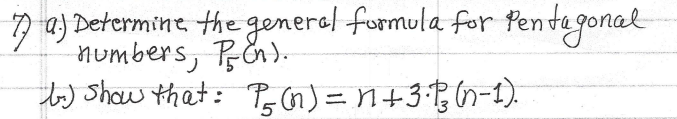 7) a.) Determine the general formula for Pentagonal
numbers, P₅(n).
b.) Show that: P₅(n) = n+3·P₃(n-1).